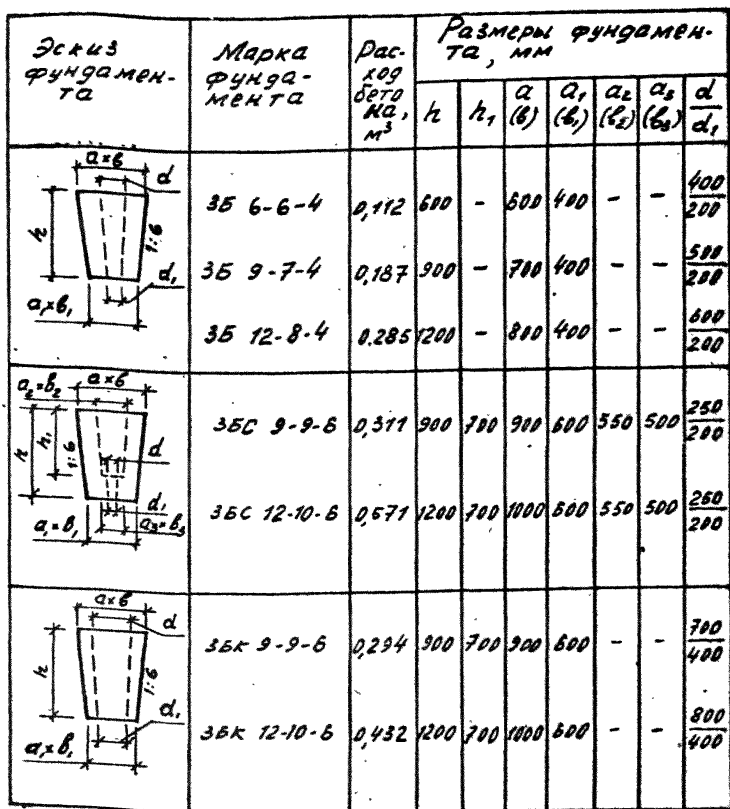 Эскиз фундамен-та
Марка фунда-мента
Рас-ход бето на, м³
Размеры фундамен-та, мм
h h₁ a (в) a₁ (в₁) a₂ (в₂) a₃ (в₃) d/d₁
a×в
d
h
1:6
d₁
a₁×в₁
ЗБ 6-6-4 0,112 600 - 600 400 - - 400/200
ЗБ 9-7-4 0,187 900 - 700 400 - - 500/200
ЗБ 12-8-4 0.285 1200 - 800 400 - - 600/200
a₂=в₂
a×в
h
h₁
1:6
d
d₁
a₁=в₁
a₃=в₃
ЗБС 9-9-6 0,311 900 700 900 600 550 500 250/200
ЗБС 12-10-6 0,571 1200 700 1000 600 550 500 250/200
a×в
d
h
1:6
d₁
a₁×в₁
ЗБК 9-9-6 0,294 900 700 900 600 - - 700/400
ЗБК 12-10-6 0,432 1200 700 1000 600 - - 800/400